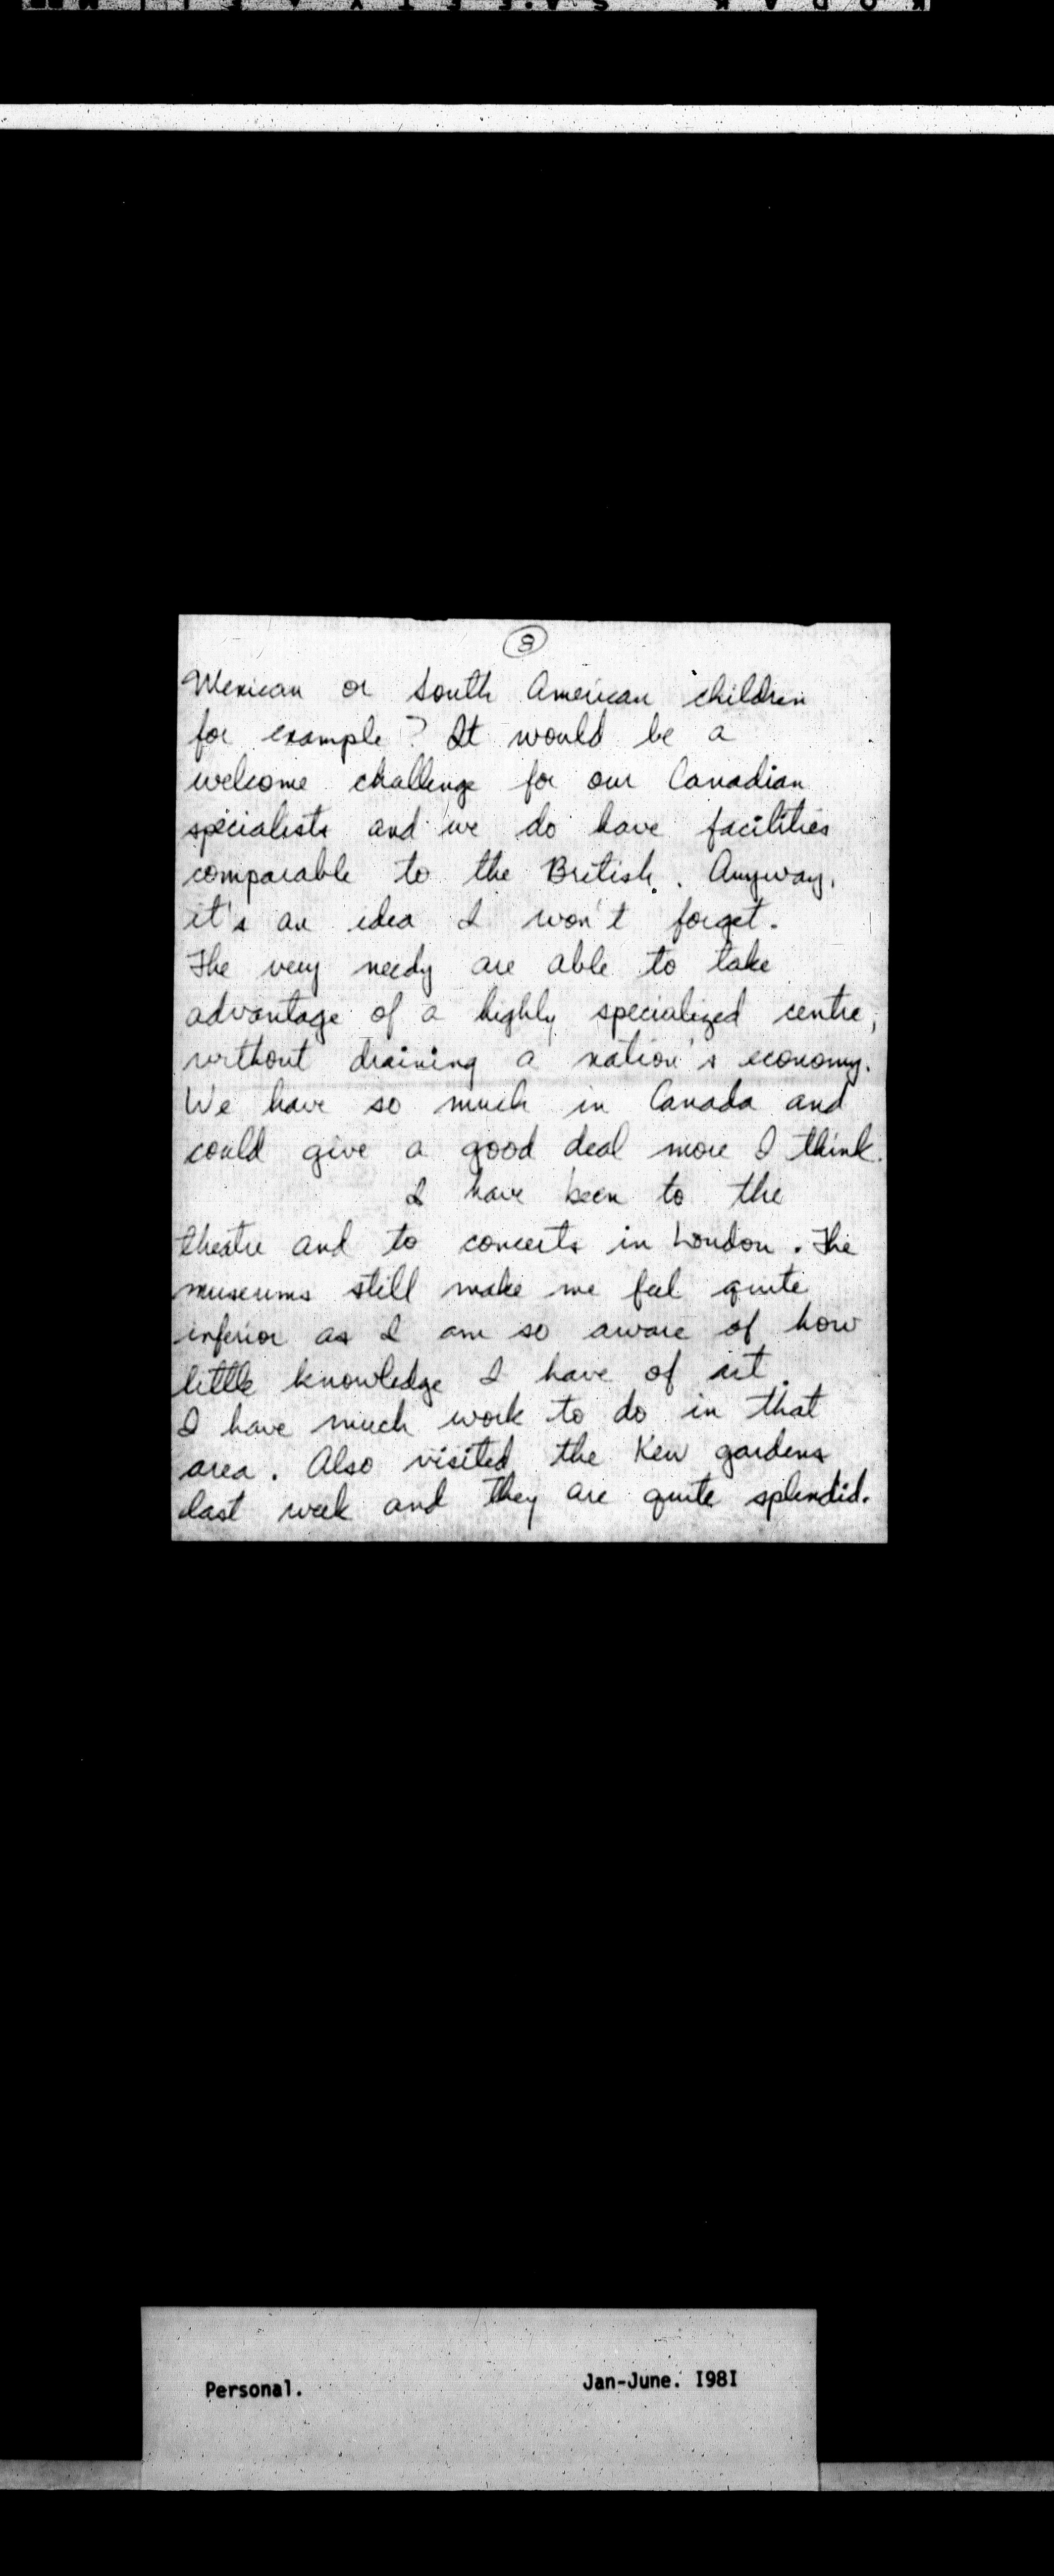 8
Mexican or South American children
for example? It would be a
welcome challenge for our Canadian
specialists and we do have facilities
comparable to the British. Anyway,
it's an idea I won't forget.
The very needy are able to take
advantage of a highly specialized centre,
without draining a nation's economy.
We have so much in Canada and
could give a good deal more I think.
I have been to the
theatre and to concerts in London. The
museums still make me feel quite
inferior as I am so aware of how
little knowledge I have of art.
I have much work to do in that
area. Also visited the Kew gardens
last week and they are quite splendid.
Personal. Jan-June. I98I